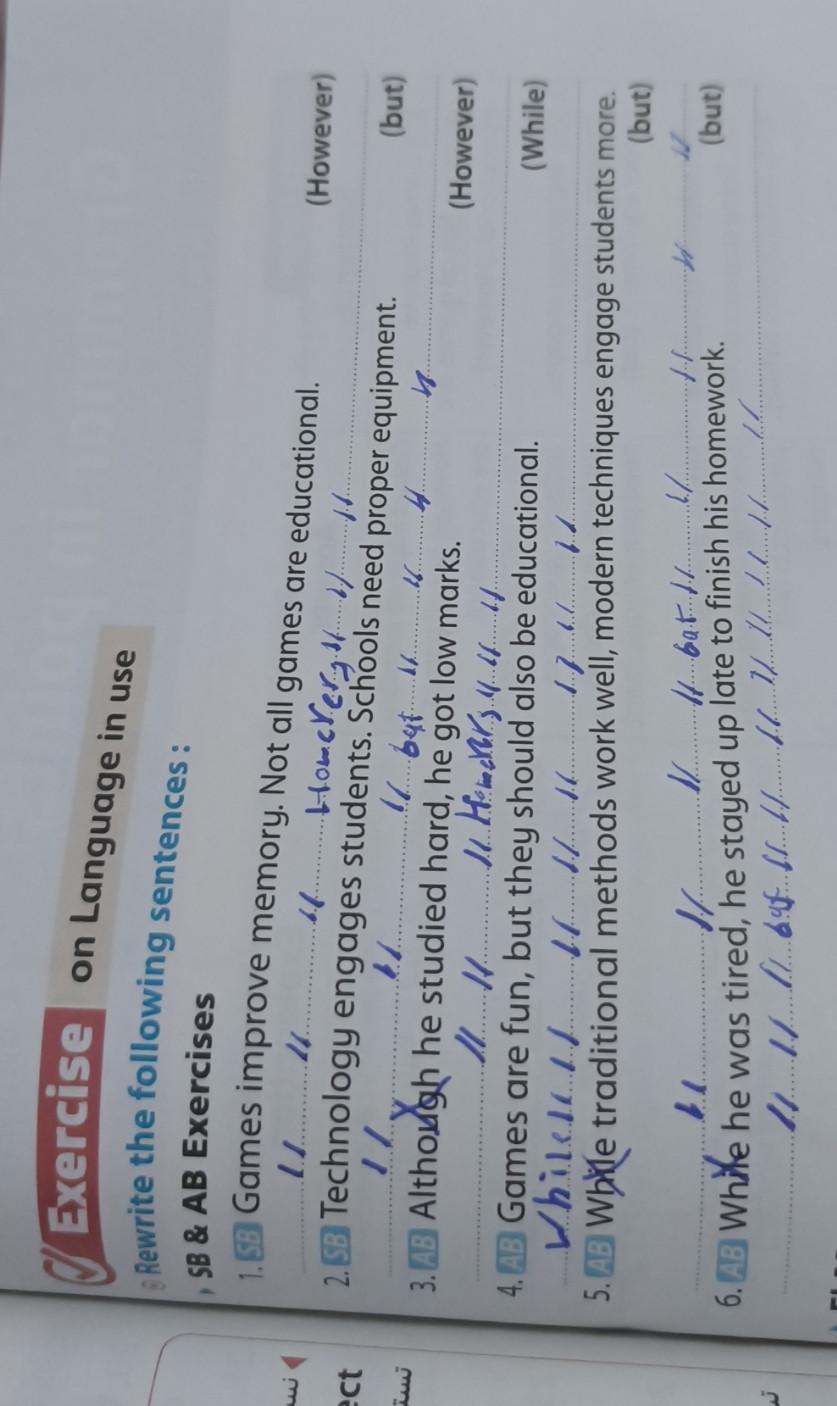 Exercise on Language in use
Rewrite the following sentences :
SB & AB Exercises
1. SB Games improve memory. Not all games are educational. (However)
〃 〃 〃 However, 〃 〃 〃
2. SB Technology engages students. Schools need proper equipment. (but)
〃 〃 〃 but 〃 〃 〃 〃
3. AB Although he studied hard, he got low marks. (However)
〃 〃 〃 However, 〃 〃 〃
4. AB Games are fun, but they should also be educational. (While)
While 〃 〃 〃 〃 〃 〃 〃 〃
5. AB While traditional methods work well, modern techniques engage students more. (but)
〃 〃 〃 〃 but 〃 〃 〃 〃 〃
6. AB While he was tired, he stayed up late to finish his homework. (but)
〃 〃 〃 but 〃 〃 〃 〃 〃 〃 〃 〃
ect